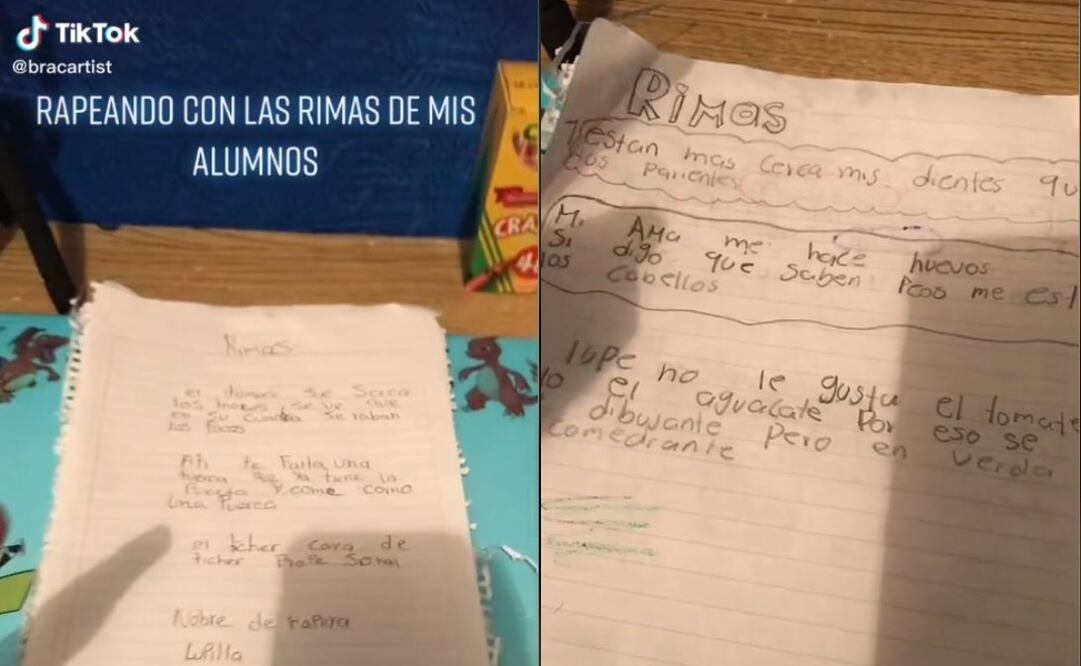 TikTok
@bracartist
RAPEANDO CON LAS RIMAS DE MIS
ALUMNOS
CRA
Rimas
el se Saca
los mocos, se ve que
en su cuadra se raban
los Focos
Ah te Falta una
tuerca que ya tiene la
Puerta y come como
una Puerca
el ticher cara de
ticher
Nobre de rapera
Lupilla
RiMAS
estan mas cerca mis dientes qu
dos parientes
M. AMa me hace huevos
Si digo que saben Feos me est
los cabellos
lupe no le gusta el tomate
lo el aguacate Por eso se
dibujante pero en verda
comediante